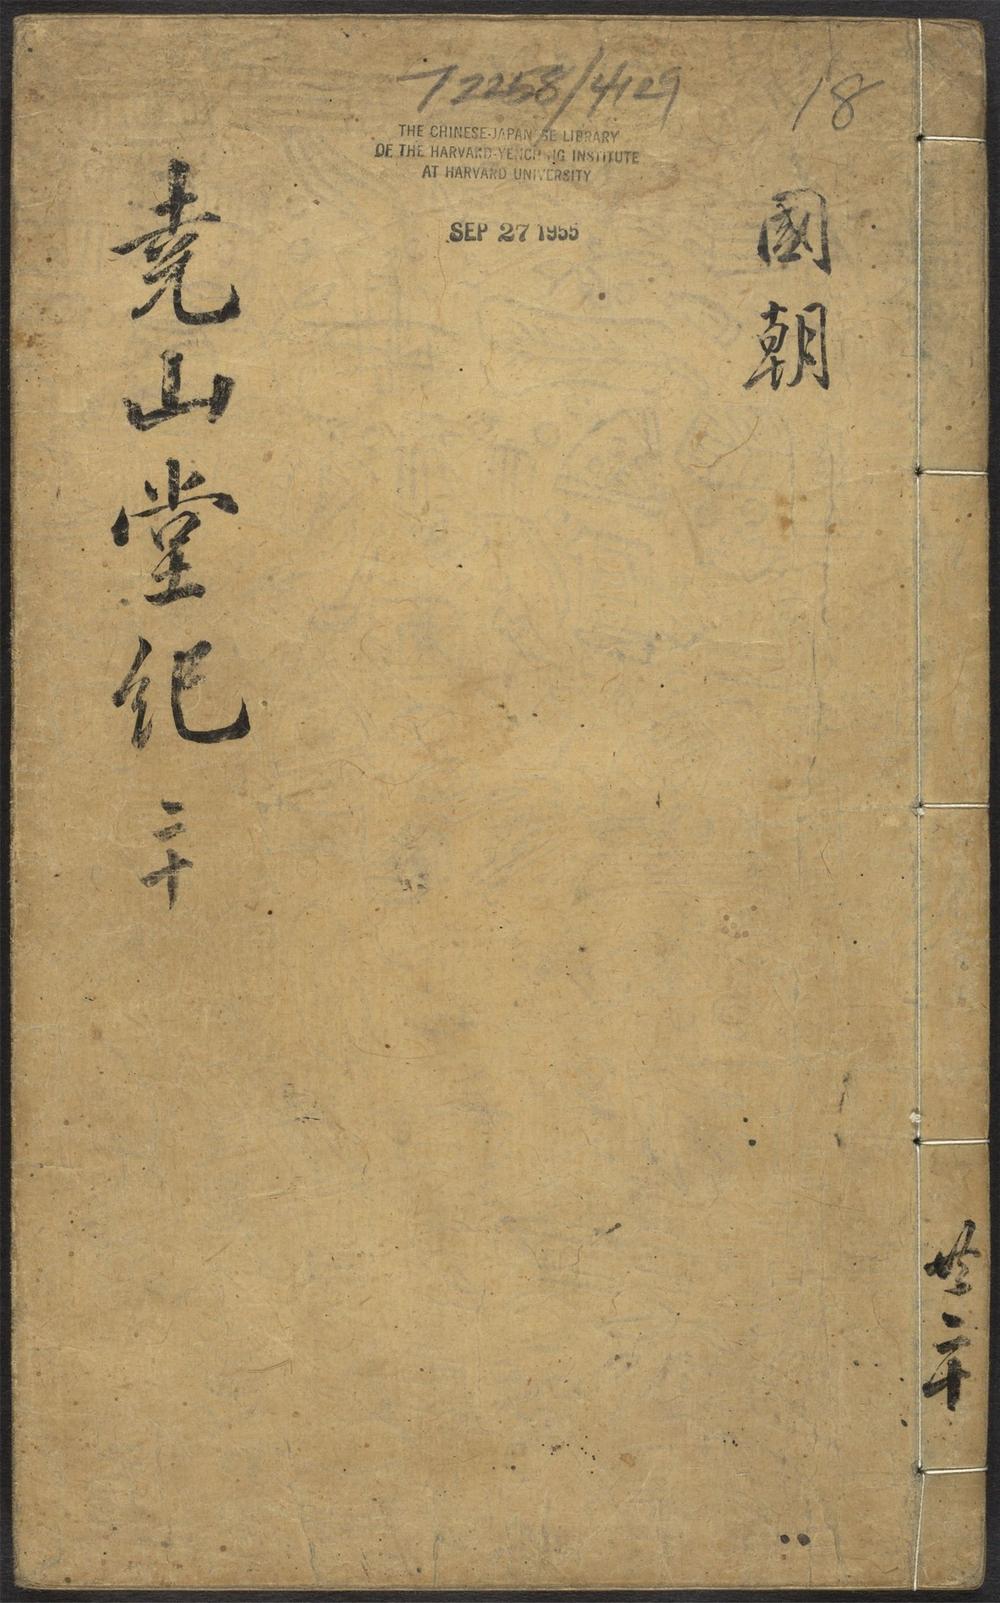 T2258/4129
18
THE CHINESE-JAPANESE LIBRARY
OF THE HARVARD-YENCHING INSTITUTE
AT HARVARD UNIVERSITY
SEP 27 1955
國朝
尭山堂紀 二十
共二十